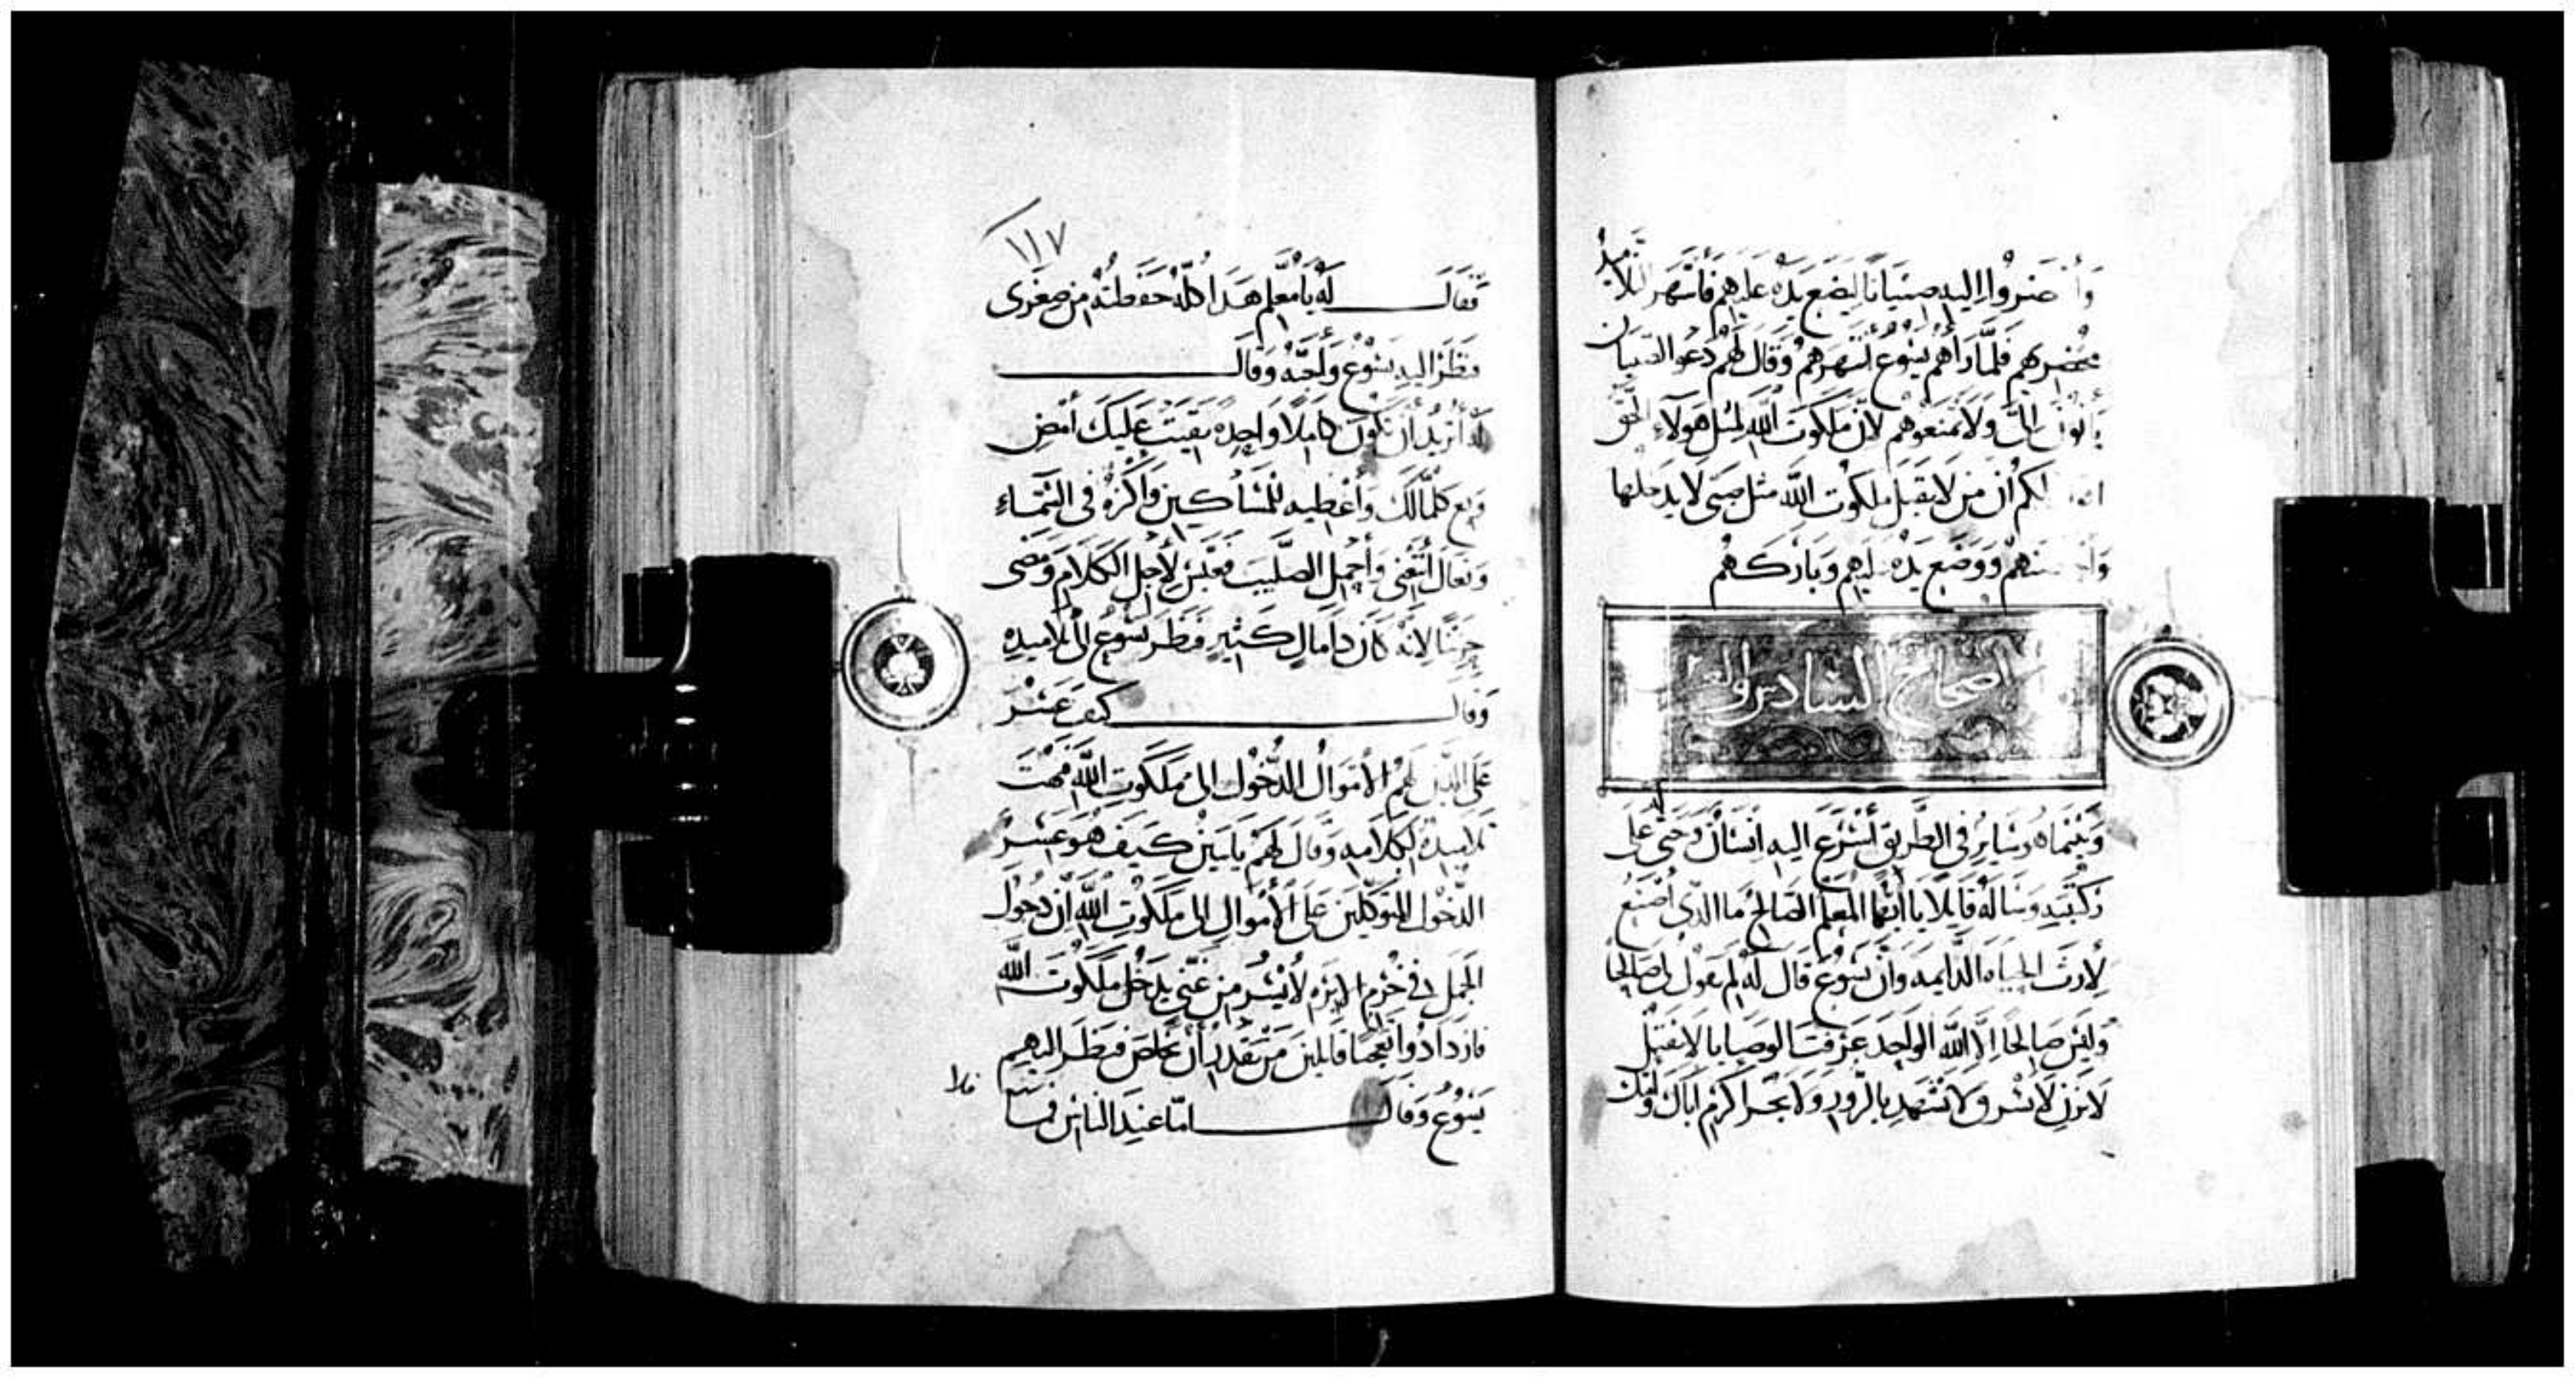 وأحضروا اليه صبيانا ليضع يده عليهم فانتهر التلاميذ
محضريهم فلما رآهم يسوع انتهرهم وقال لهم دعوا الصبيان
يأتون الىّ ولا تمنعوهم لان ملكوت الله لمثل هولاء الحق
لكم أن من لا يقبل ملكوت الله مثل صبي لا يدخلها
ووضع يده عليهم وباركهم
اصحاح السادس وال
وبينما هو سائر في الطريق أسرع اليه انسان وجثى على
ركبتيه وسأله قايلا يا أيها المعلم الصالح ما الذى أصنع
لأرث الحياه الدايمه وأن يسوع قال له لم تقول لى صالحا
وليس صالحا إلا الله الواحد عرفت الوصايا لا تقتل
لا تزن لا تسرق لا تشهد بالزور ولا تجر اكرم اباك وأمك
١١٧
فقال له يا معلم هدا كله حفظته من صغرى
فنظر اليه يسوع وأحبه وقال
له أتريد أن تكون كاملا واحده بقيت عليك أمض
وبع كلما لك وأعطيه للمساكين واكنزه في السماء
وتعال اتبعنى وأحمل الصليب فعبس لأجل الكلام ومضى
حزينا لانه كان دا مال كثير فنظر يسوع الى تلاميده
وقال كيف عسر
على الدين لهم الأموال الدخول الى ملكوت الله فبهت
تلاميده لكلامه وقال لهم يا بنين كيف هو عسر
الدخول المتوكلين على الأموال الى ملكوت الله ان دخول
الجمل في خرم الابره لأيسر من غني يدخل ملكوت الله
فازدادوا تعجبا قايلين من يقدر أن يخلص فنظر اليهم
يسوع وقال امّا عند الناس فما
فلا